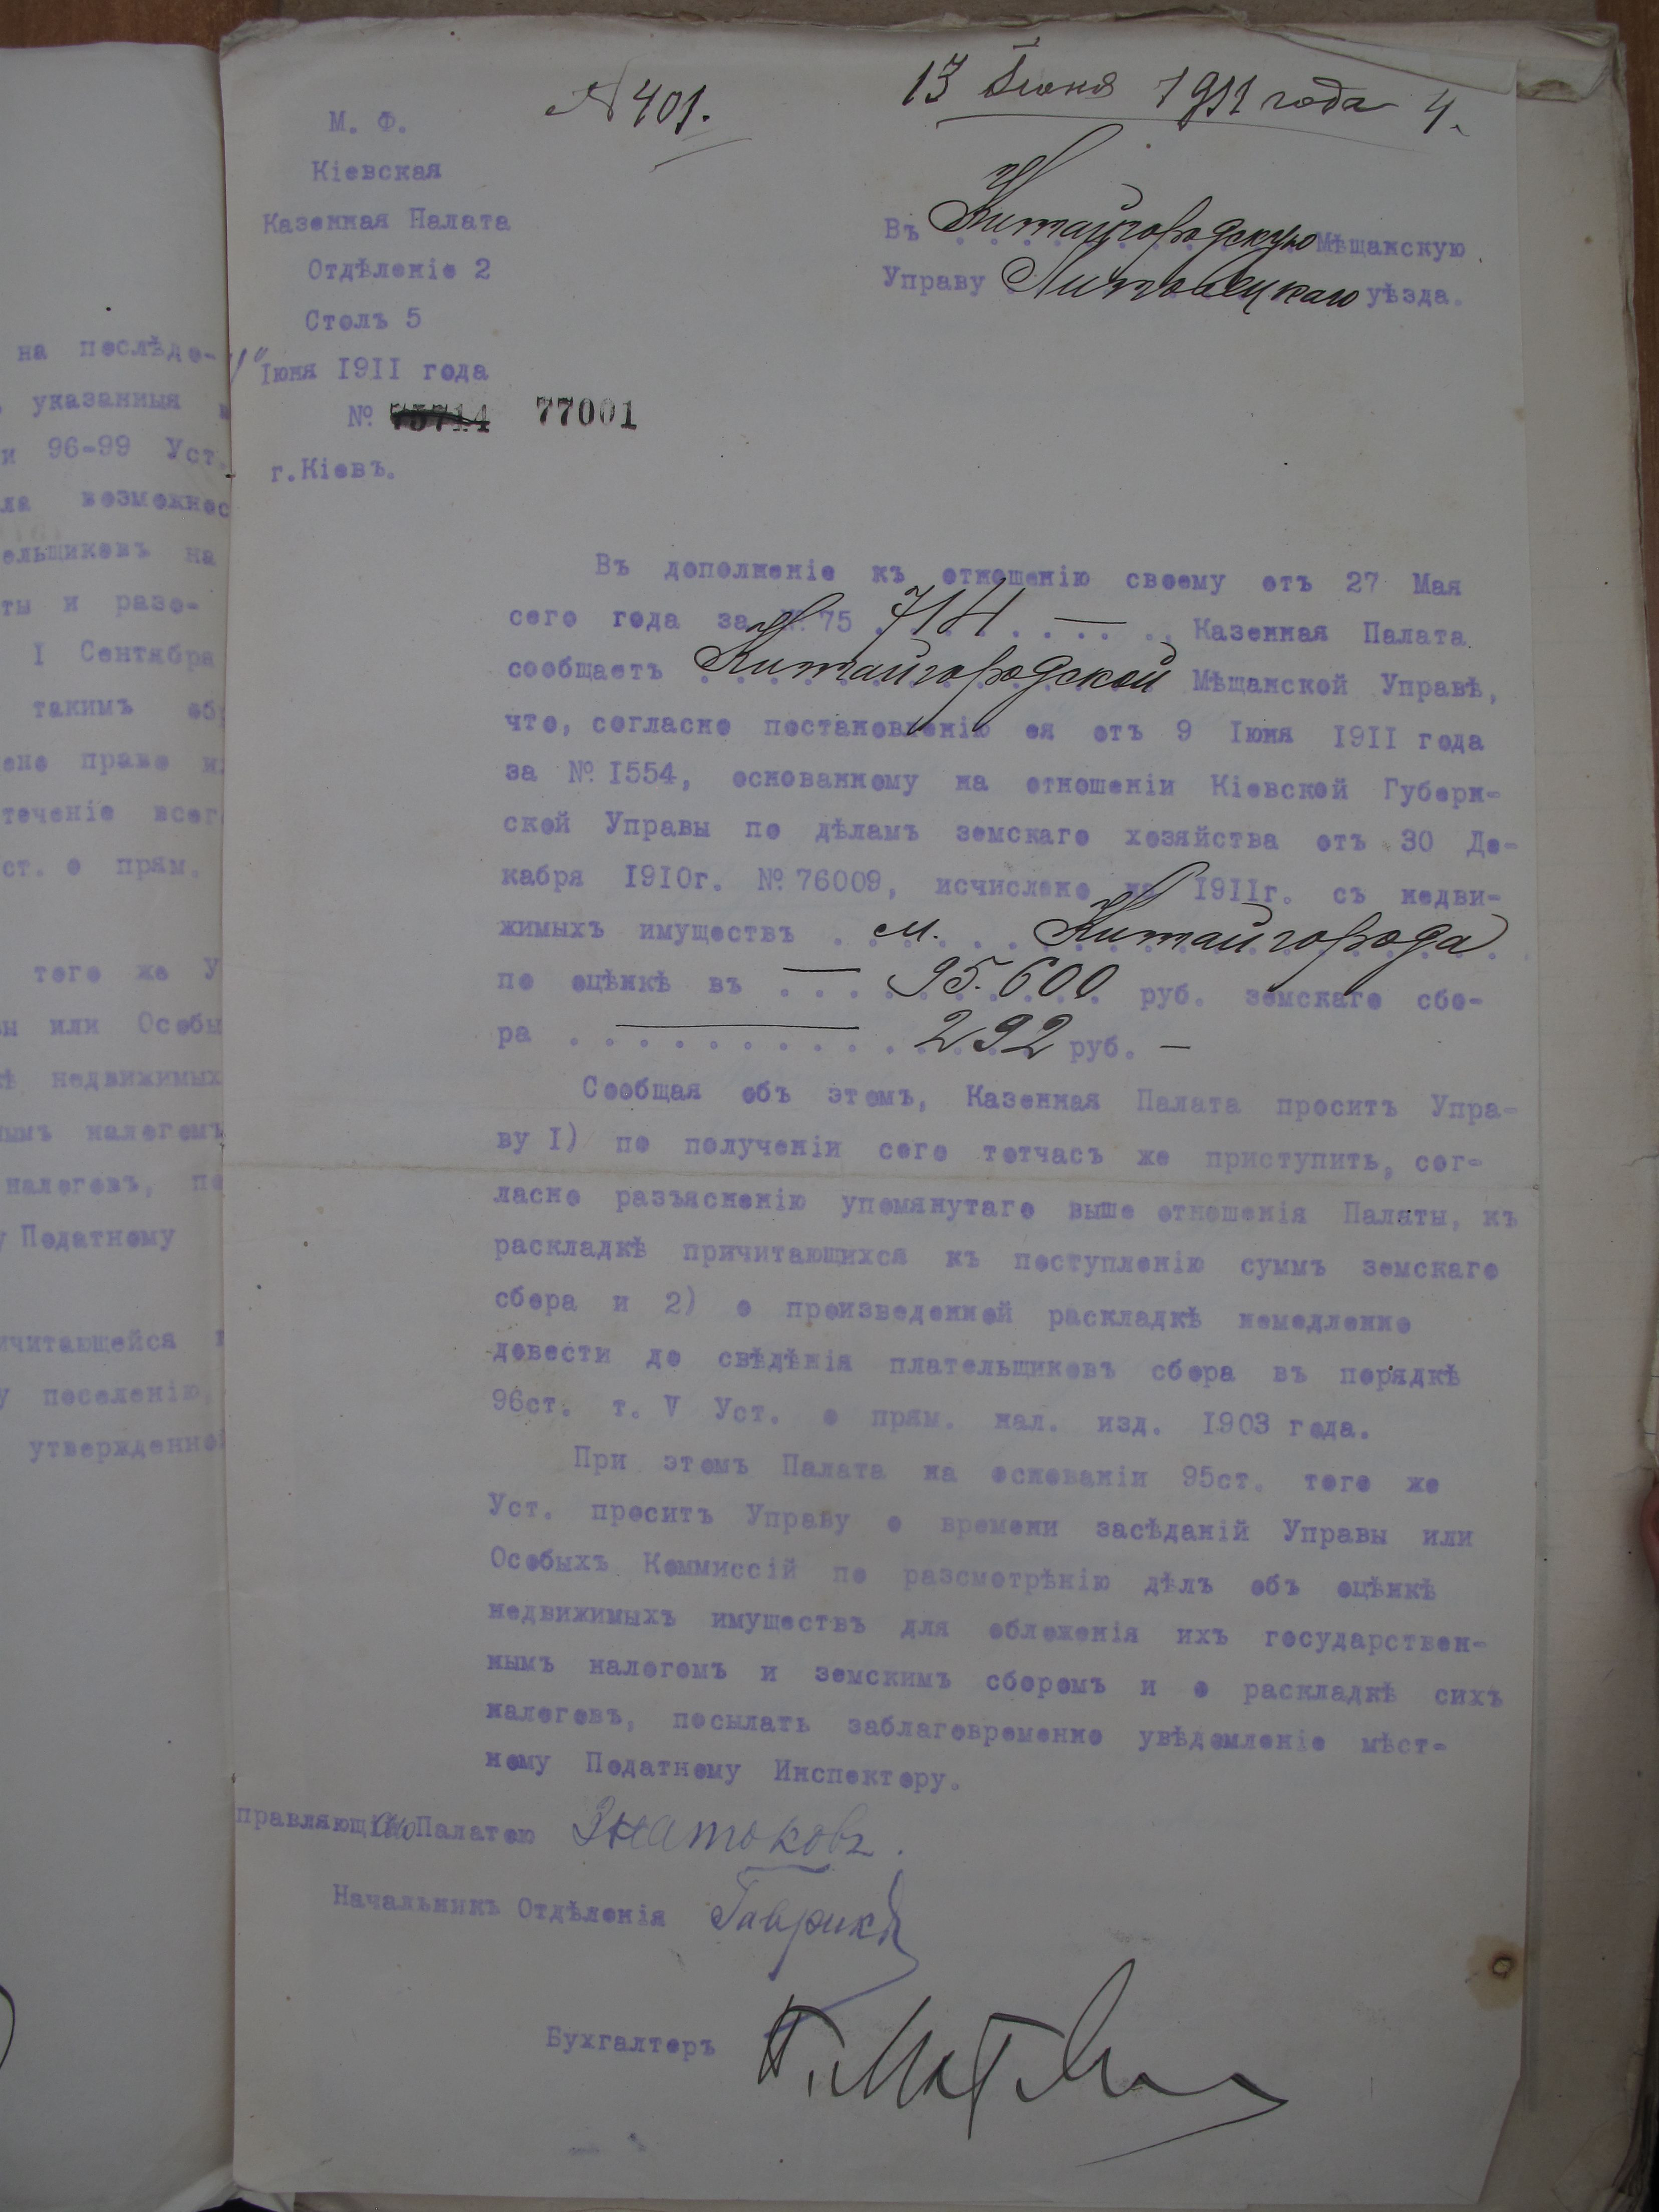 № 401.
13 Іюня 1911 года 4.
М. Ф.
Кіевская
Казенная Палата
Отдѣленіе 2
Столъ 5
Іюня 1911 года
№ 75714 77001
г. Кіевъ.
Въ Китайгородскую Мѣщанскую
Управу Липовецкаго уѣзда.
Въ дополненіе къ отношенію своему отъ 27 Мая
сего года за № 75 714 — Казенная Палата
сообщаетъ Китайгородской Мѣщанской Управѣ,
что, согласно постановленію ея отъ 9 Іюня 1911 года
за № 1554, основанному на отношеніи Кіевской Губерн-
ской Управы по дѣламъ земскаго хозяйства отъ 30 Де-
кабря 1910г. № 76009, исчислено на 1911г. съ недви-
жимыхъ имуществъ м. Китайгорода
по оцѣнкѣ въ — 95.600 руб. земскаго сбо-
ра — 292 руб. —
Сообщая объ этомъ, Казенная Палата проситъ Упра-
ву 1) по полученіи сего тотчасъ же приступить, сог-
ласно разъясненію упомянутаго выше отношенія Палаты, къ
раскладкѣ причитающихся къ поступленію суммъ земскаго
сбора и 2) о произведенной раскладкѣ немедленно
довести до свѣдѣнія плательщиковъ сбора въ порядкѣ
96ст. т. V Уст. о прям. нал. изд. 1903 года.
При этомъ Палата на основаніи 95ст. того же
Уст. проситъ Управу о времени засѣданій Управы или
Особыхъ Коммиссій по разсмотрѣнію дѣлъ объ оцѣнкѣ
недвижимыхъ имуществъ для обложенія ихъ государствен-
нымъ налогомъ и земскимъ сборомъ и о раскладкѣ сихъ
налоговъ, посылать заблаговременно увѣдомленіе мѣст-
ному Податному Инспектору.
правляющій Палатою Знатоковъ.
Начальникъ Отдѣленія
Бухгалтеръ
на послѣдо-
указанныя
и 96-99 Уст.
ла возможнос
ельщиковъ на
ты и разо-
1 Сентября
такимъ об
ено право и
теченіе всег
ст. о прям.
того же У
ы или Особы
ѣ недвижимых
нымъ налогомъ
налоговъ, по
у Податному
ичитающейся
у поселенію,
утвержденной